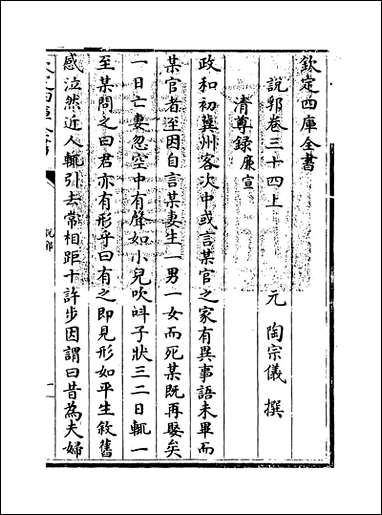 欽定四庫全書
說郛卷三十四上
元 陶宗儀 撰
清尊録廉宣
政和初冀州客次中或言某官之家有異事語未畢而
某官者至因自言某妻生一男一女而死某既再娶矣
一日亡妻忽空中有聲如小兒吹叫子狀三二日輒一
至某問之曰君亦有形乎曰有之即見形如平生敘舊
感泣然近人輒引去常相距十許步因謂曰昔為夫婦
欽定四庫全書
說郛
一